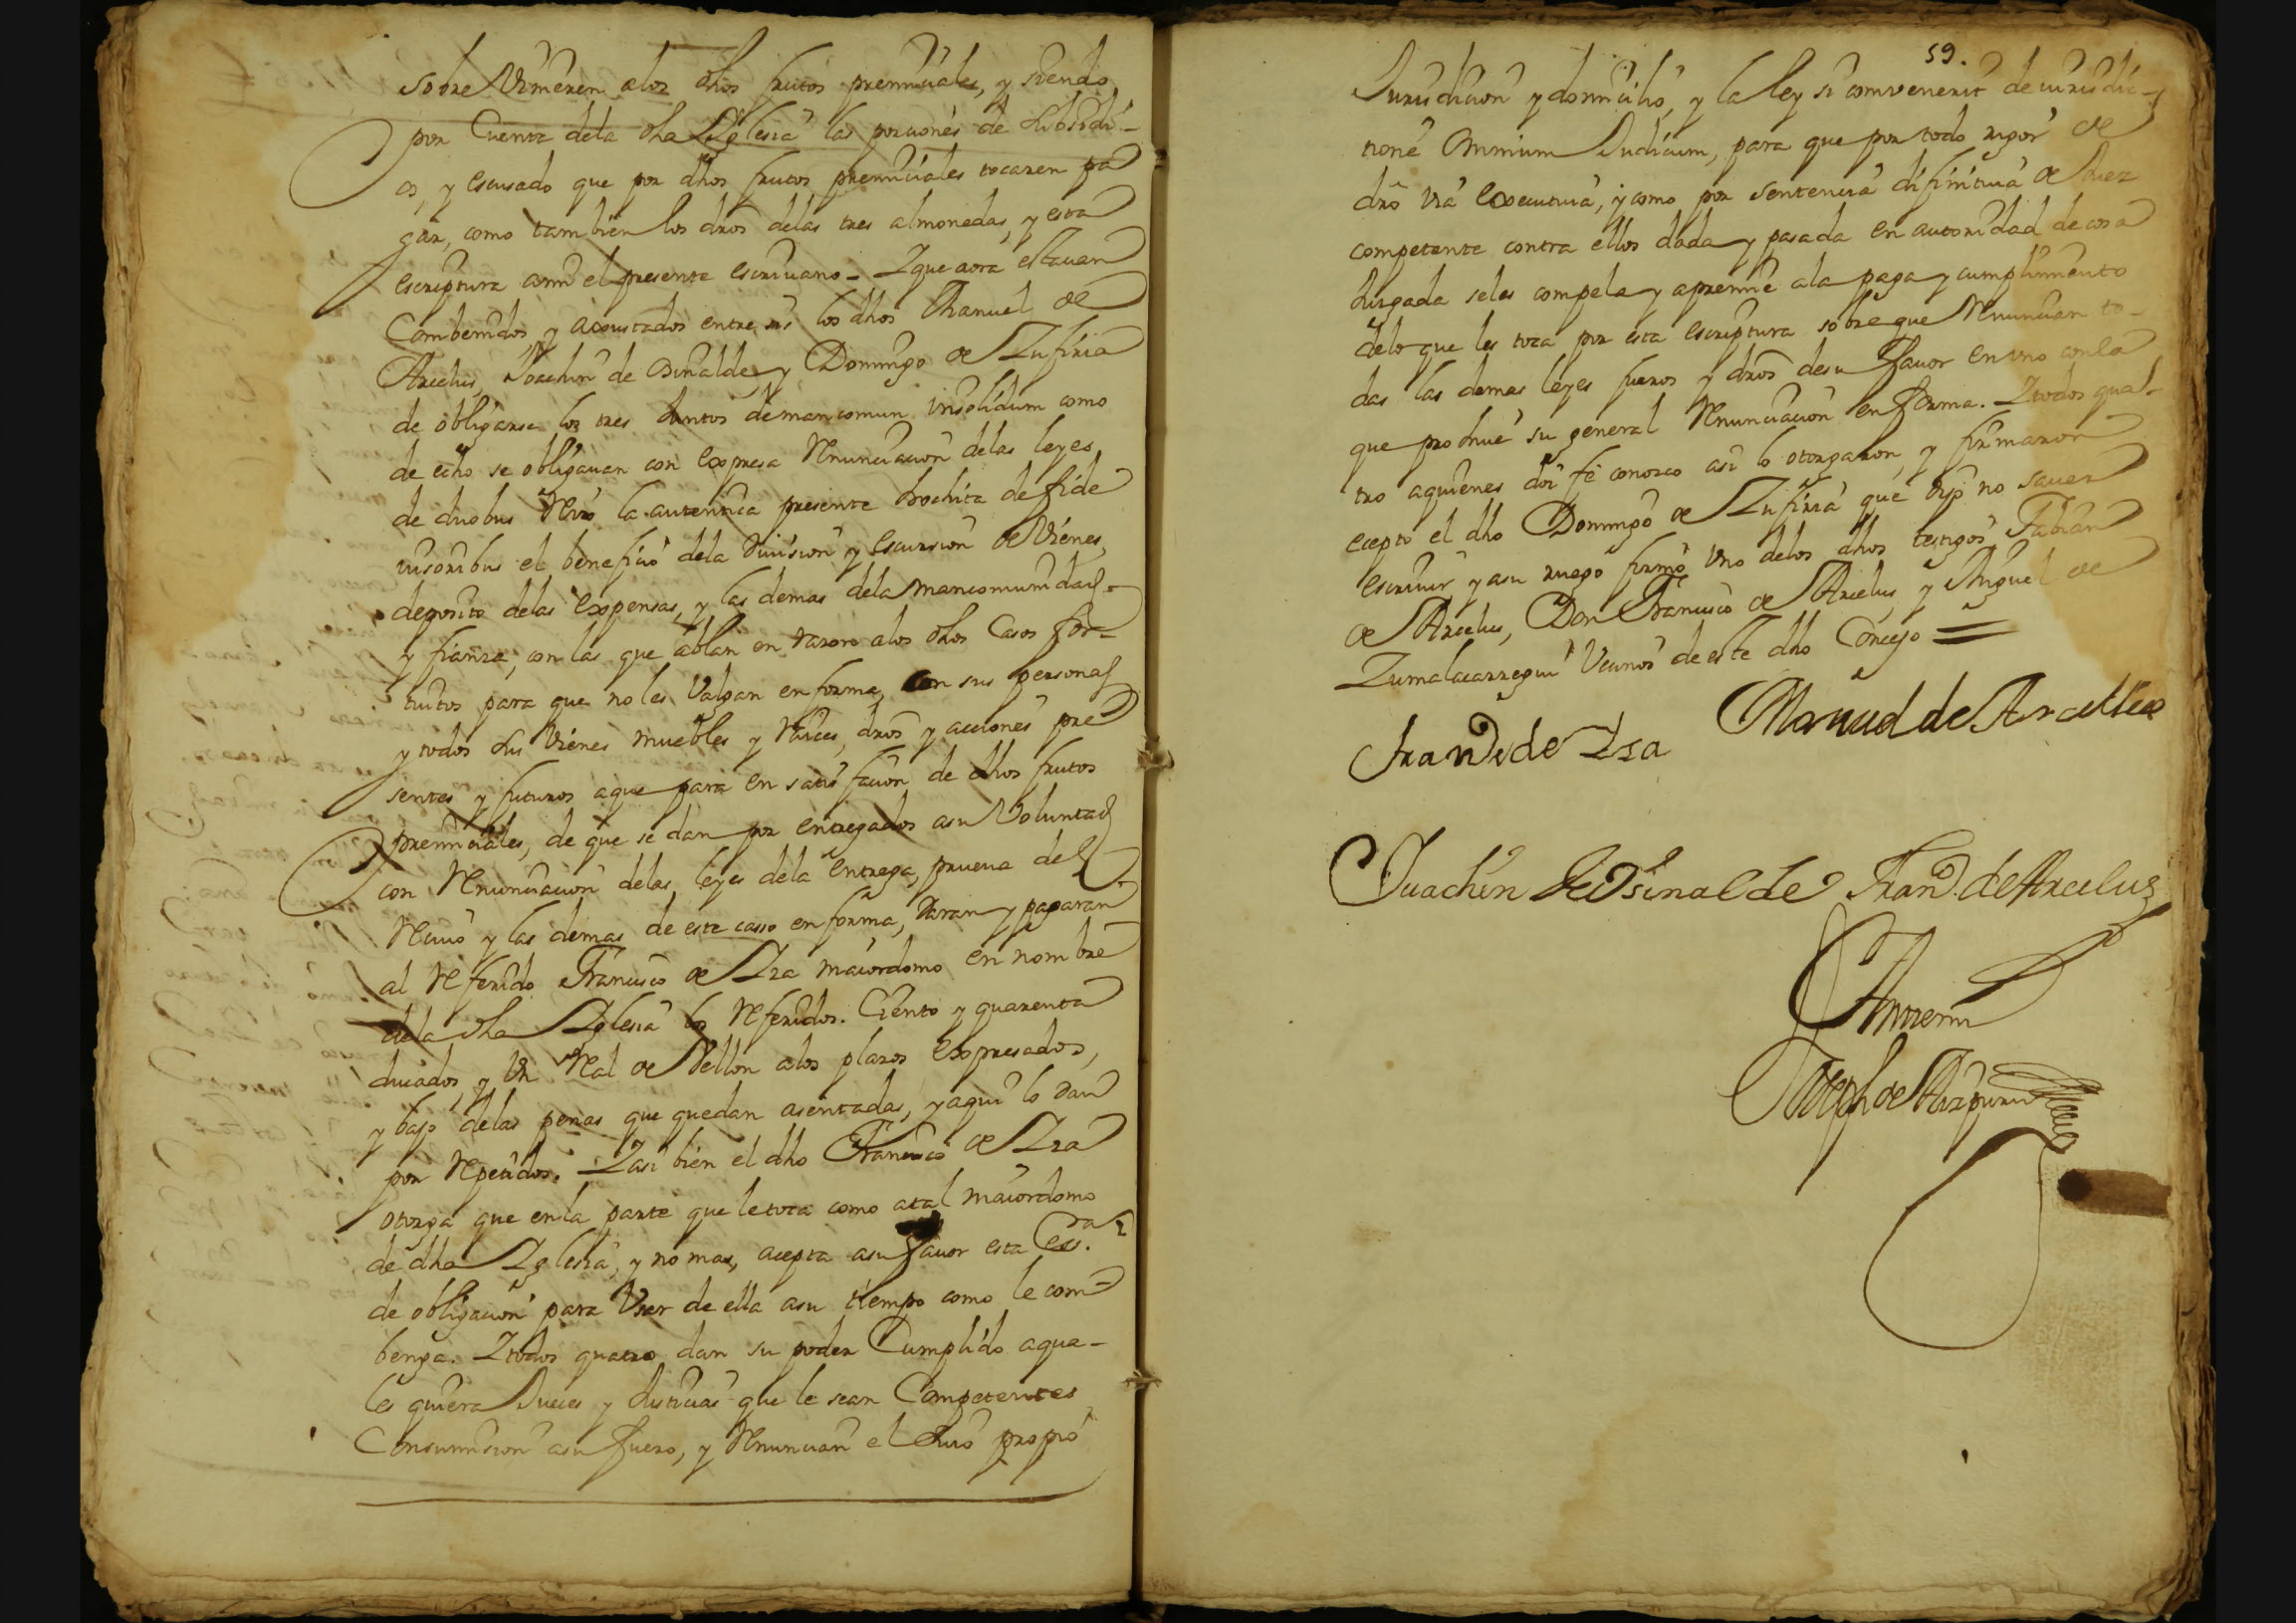 sobre Vinieren alos dhos frutos premiciales, y siendo
por Cuenta dela dha Iglesia las porciones de subsidi-
os, y escusado que por dhos frutos premiciales tocaren pa
gar, como tambien los dros delas tres almonedas, y esta
escriptura con el presente escriuano - Y que aora estauan
Combenidos, y ajoustados entre si los dhos Manuel de
Arcelus, Joachin de Osinalde y Domingo de Zufiria
de obligarse los tres Juntos de mancomun insolidum como
de echo se obligauan con expresa Renunciacion delas leyes
de duobus Reis la autentica presente hochita de fide
iusoribus el beneficio dela diuision y escursion de Vienes
deposito delas expensas, y las demas dela mancomunidad
y fianza, con las que ablan en razon alos dhos Casos for-
tuitos para que no les Valgan en forma, con sus personas
y todos sus Vienes muebles y raices, dros y acciones pre
sentes y futuros a que para en satisfacion de dhos frutos
premiciales, de que se dan por entregados asu Voluntad
con Renunciacion delas leyes dela entrega, prueua del
Reciuo y las demas de este casso en forma, daran y pagaran
al Referido Francisco de Iza maiordomo en nombre
dela dha Iglesia los Referidos. Ciento y quarenta
ducados, y Un Real de Vellon alos plazos expresados,
y bajo delas penas que quedan asentadas, y aqui lo dan
por Repetidos. Y asi bien el dho Francisco de Iza
otorga que enla parte que le toca como atal maiordomo
de dha Iglesia, y no mas, acepta asu fauor esta Ess.ra
de obligacion para Vsar de ella asu tiempo como le com
benga. Y todos quatro dan su poder Cumplido aqua-
les quiera Jueces y Justicias que le sean Competentes
Consumision asu fuero, y Renuncian el suio propio
59.
Jurisdicion y domicilio, y la ley si comvenerit de iurisdic-
tione Omnium Judicum, para que por todo rigor de
dro via executiua, y como por sentencia difinitiua de Juez
competente contra ellos dada y pasada en autoridad de cosa
Juzgada seles compela y apremie ala paga y cumplimento
delo que les toca por esta escriptura sobre que Renuncian to-
das las demas leyes fueros y dros desu fauor en vno con la
que prohiue su general Renunciacion en forma. Y todos qua-
tro aquienes doi fe conozco asi lo otorgaron, y firmaron
ecepto el dho Domingo de Zufiria que dijo no sauer
escriuir y asu ruego firmo Vno delos dhos testigos Fabian
de Arcelus, Don Francisco de Arcelus, y Miguel de
Zumalacarregui Vecinos de este dho Concejo =
Manuel de Arcelus
Fran.co de Iza
Juachin de Osinalde Fran.co de Arcelus
Antemi
Joseph de Aizpuru